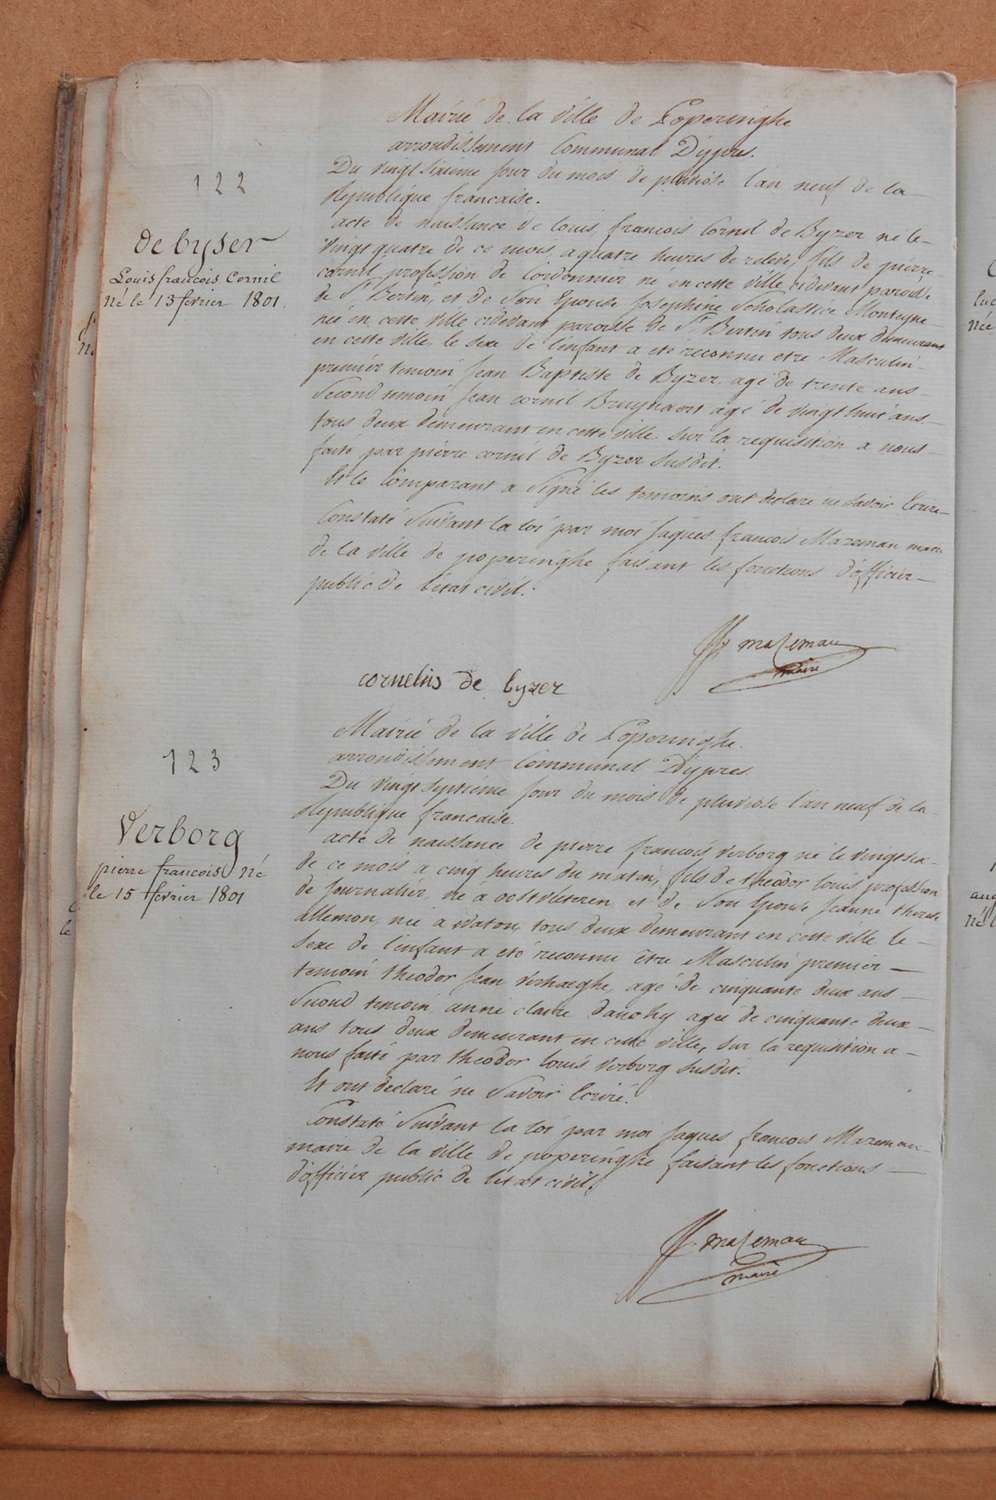 122
de byser
Louis francois Cornil
Né le 13 fevrier 1801.
Mairié de la ville de Poperinghe
arrondissement Communal D'ypres.
Du vingt sixieme jour du mois de pluviose l'an neuf de la
Republique francaise.
acte de naissance de louis francois Cornil de Byzer né le
vingt quatre de ce mois a quatre heures de relevé, fils de pierre
cornil profession de Cordonnier né en cette ville cidevant paroisse
de St Bertin, et de Son Epouse Josephine Scholastice Montegne
née en cette ville cidevant paroisse de St Bertin tous deux demeurant
en cette ville le sexe de l'enfant a eté reconnu etre Masculin
premier temoin Jean Baptiste de Byzer, agé de trente ans
Second temoin Jean cornil Bruynaert agé de vingt huit ans
tous deux demeurant en cette ville sur la requisition a nous
faite par pierre cornil de Byzer Susdit.
Et le Comparant a Signé les temoins ont declaré ne Savoir Ecrire
Constaté Suivant la loi par moi Jaques francois Mazeman maire
de la ville de poperinghe faisant les fonctions d'officier
public de l'etat civil.
JF mazeman
maire
cornelis de byzer
123
Verborg
pierre francois Né
le 15 fevrier 1801
Mairié de la ville de Poperinghe.
arrondissement Communal D'ypres
Du vingt septiéme jour du mois de pluviose l'an neuf de la
Republique francaise.
acte de naissance de pierre francois Verborg né le vingt six
de ce mois a cinq heures du matin, fils de theodor louis profession
de Journalier, né a oostvleteren et de Son Epouse Jeanne therese
allemon, née a Watou, tous deux demeurant en cette ville le
Sexe de l'enfant a eté reconnu être Masculin premier
temoin theodor Jean Verhaeghe, agé de cinquante deux ans
Second temoin anne claire Dauchy agée de cinquante deux
ans tous deux demeurant en cette ville, sur la requisition a
nous faite par theodor louis Verborg Susdit.
Et ont declaré ne Savoir Ecriré.
Constaté Suivant la loi par moi Jaques francois Mazeman
maire de la ville de poperinghe faisant les fonctions
d'officier public de l'etat civil.
JF mazeman
maire